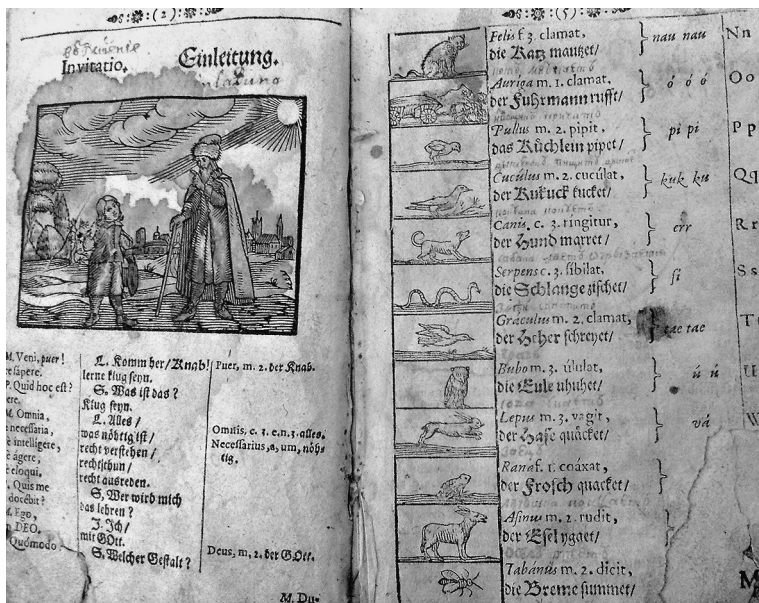 (2)
Invitatio.
Einleitung.
M. Veni, puer!
sapere.
P. Quid hoc est?
M. Omnia,
necessaria,
intelligere,
agere,
eloqui,
Quis me
docebit?
M. Ego,
DEO.
Quómodo
L. Komm her/Knab!
lerne klug seyn.
S. Was ist das?
Klug seyn.
L. Alles/
was nöhtig ist/
recht verstehen/
recht thun/
recht ausreden.
S. Wer wird mich
das lehren?
Ich/
mit GOtt.
S. Welcher Gestalt?
Puer, m. 2. der Knab.
Omnis, c. 3. e. n. 3. alles.
Necessarius, a, um, nöh-
tig.
Deus, m, 2. der GOtt.
M. Du-
(5)
Felis f. 3. clamat,
die Katz mautzet/
nau nau
Nn
Auriga m. 1. clamat,
der Fuhrmann rufft/
ó ó ó
Oo
Pullus m. 2. pipit,
das Küchlein pipet/
pi pi
Pp
Cucúlus m. 2. cucúlat,
der Kukuck kucket/
kuk ku
Qq
Canis, c. 3. ringitur,
der Hund marret/
err
Rr
Serpens c. 3. sibilat,
die Schlange zischet/
si
Ss
Gráculus m. 2. clamat,
der Heher schreyet/
tae tae
T
Bubo m. 3. úlulat,
die Eule uhuhet/
ú ú
Lepus m. 3. vagit,
der Hase quäcket/
vá
W
Rana f. 1. coáxat,
der Frosch quacket/
Asinus m. 2. rudit,
der Esel ygaet/
Tabánus m. 2. dicit,
die Breme summet/
M